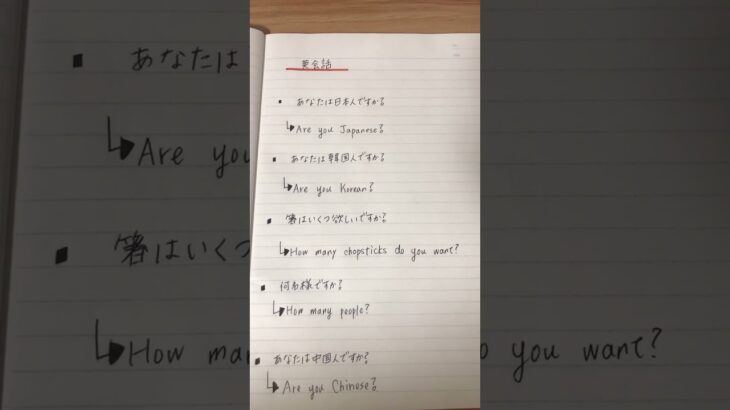 英会話
▪ あなたは日本人ですか?
↳Are you Japanese?
▪ あなたは韓国人ですか?
↳Are you Korean?
▪ 箸はいくつ欲しいですか?
↳How many chopsticks do you want?
▪ 何名様ですか?
↳How many people?
▪ あなたは中国人ですか?
↳Are you Chinese?